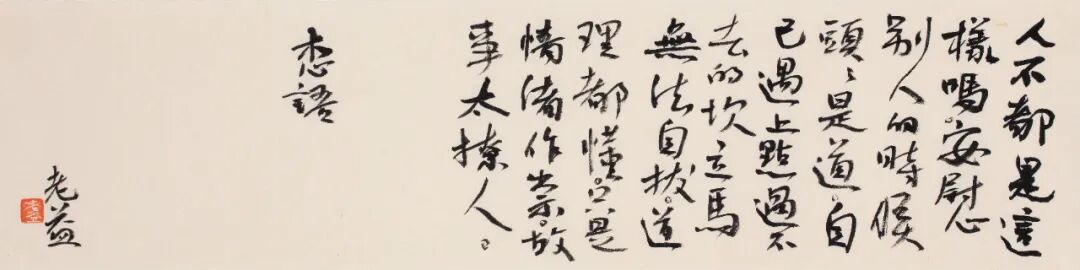 人不都是這
樣嗎。安慰
别人的時候
頭〻是道。自
己遇上點過不
去的坎立馬
無法自拔。道
理都懂。只是
情緒作祟。故
事太撩人。
語
老益